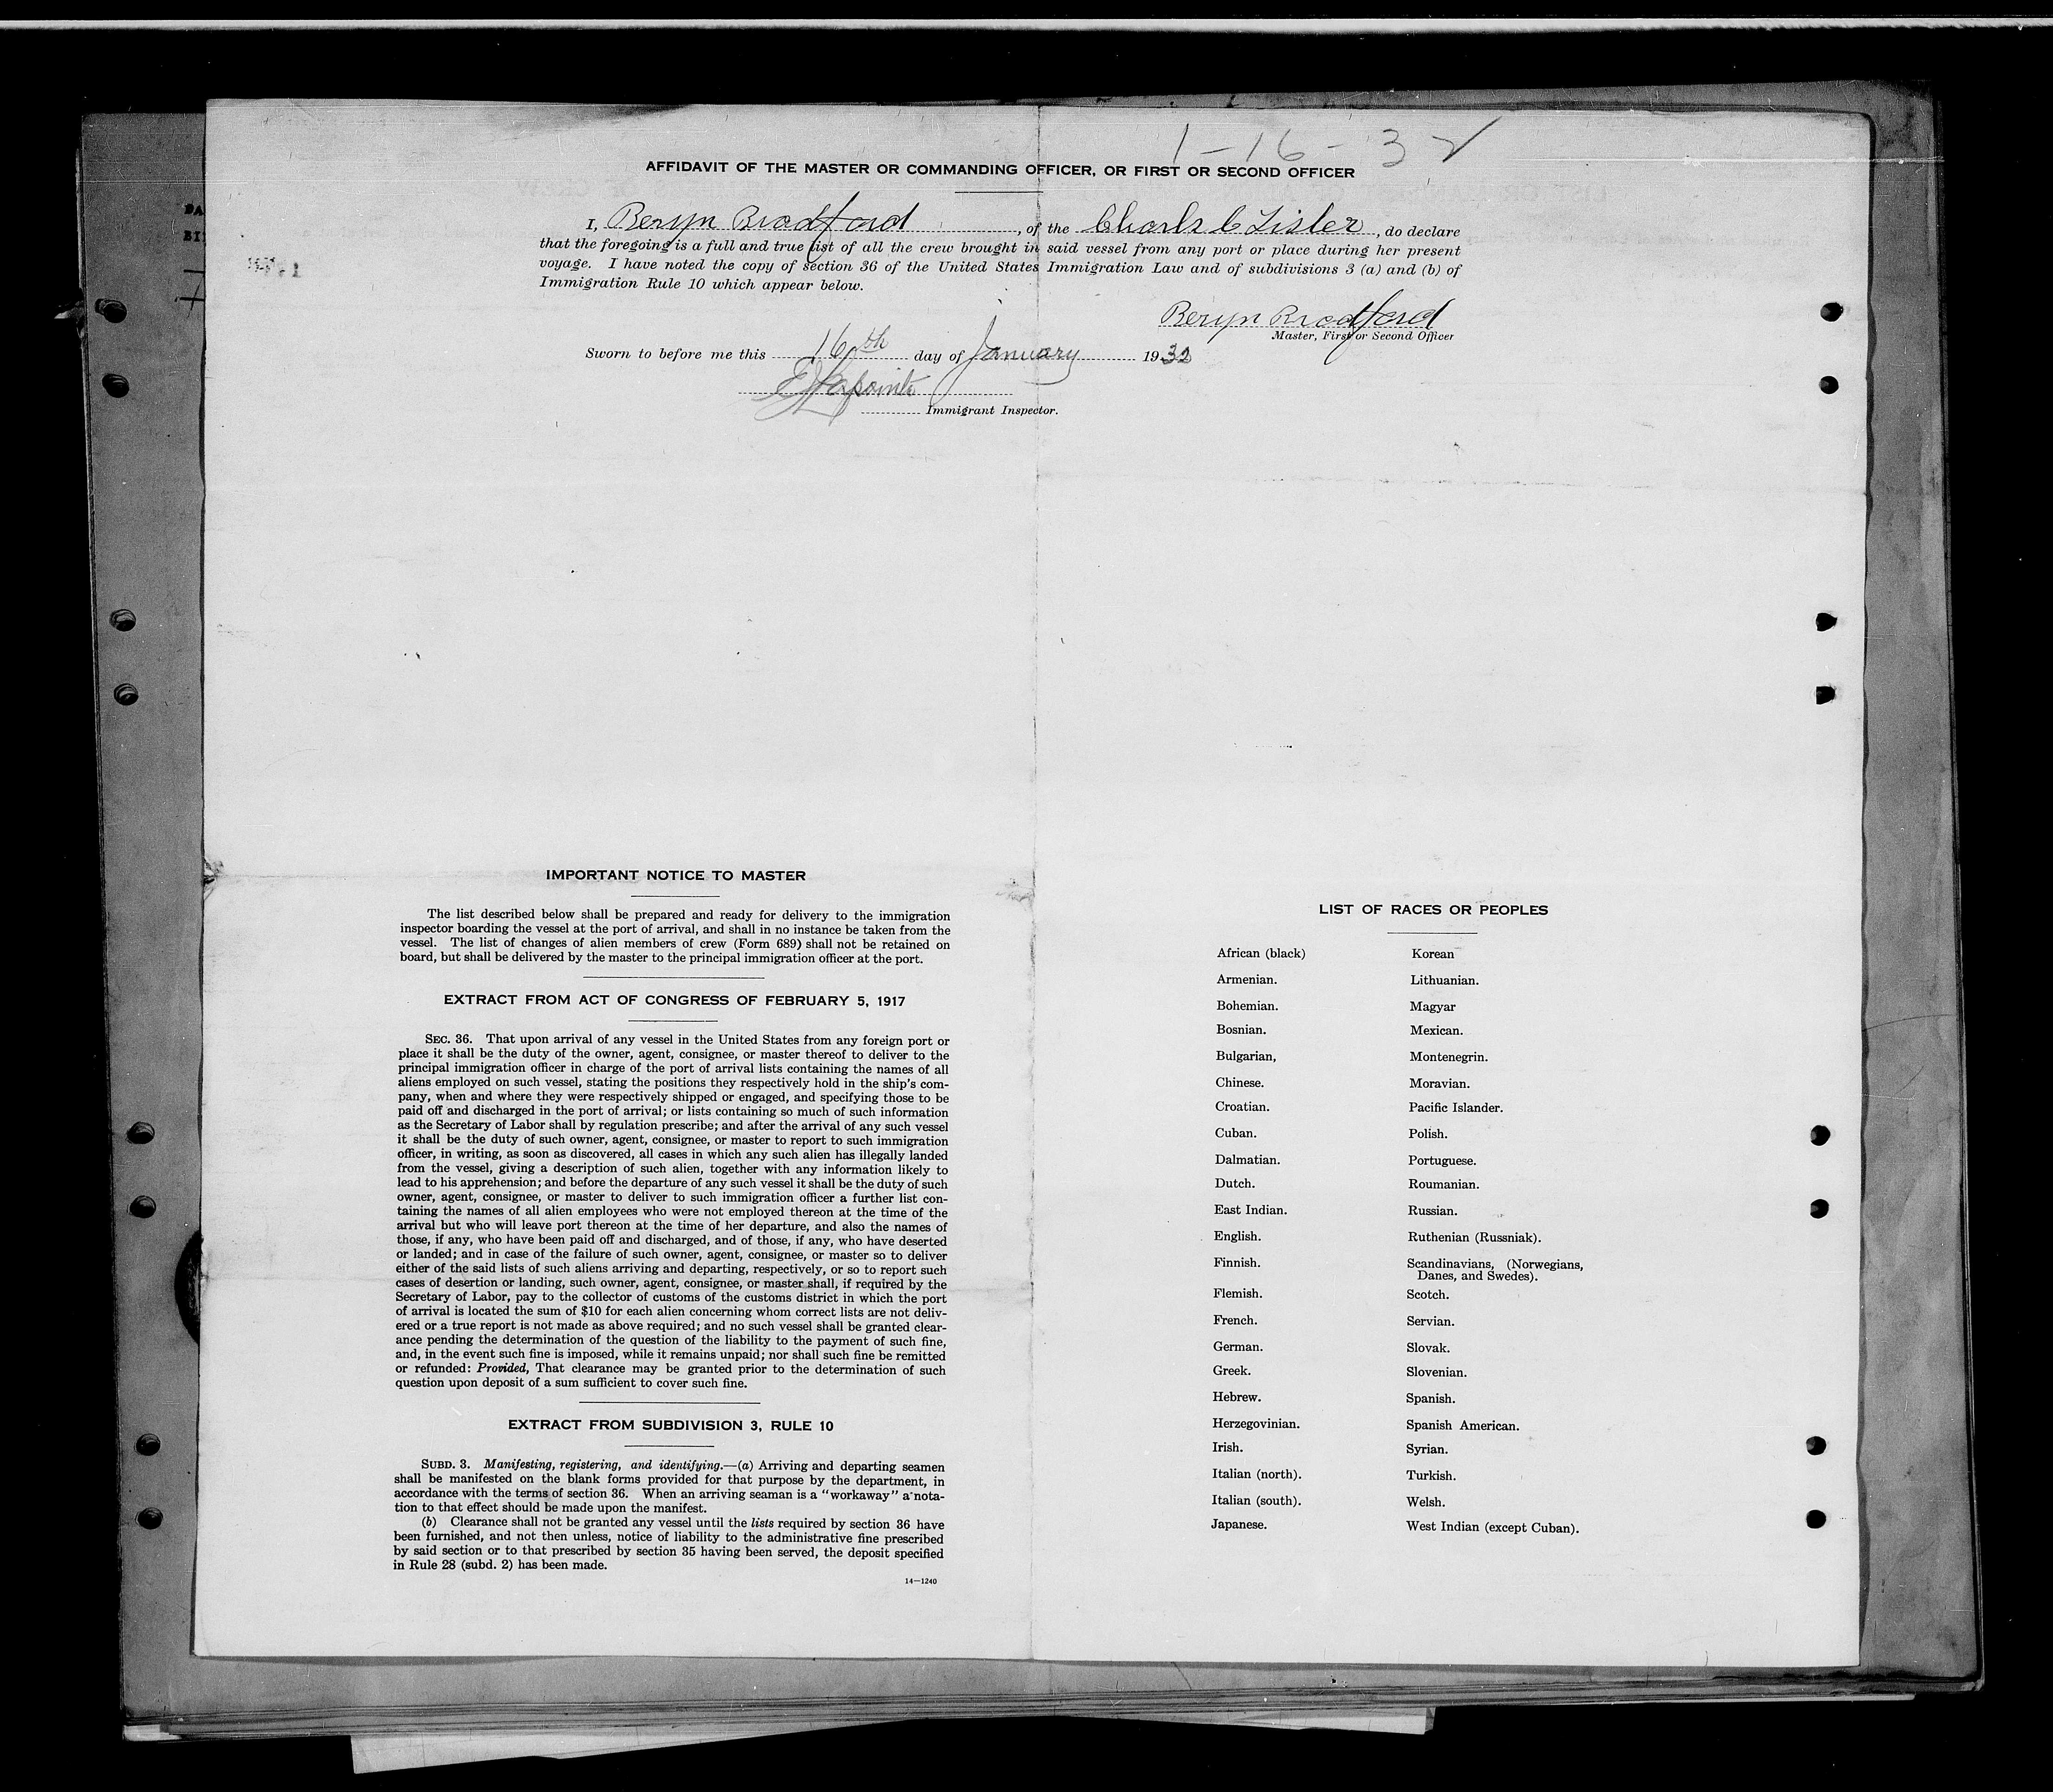 1-16-32
AFFIDAVIT OF THE MASTER OR COMMANDING OFFICER, OR FIRST OR SECOND OFFICER
I, Beryn Bradford, of the Charls C Lister, do declare
that the foregoing is a full and true list of all the crew brought in said vessel from any port or place during her present
voyage. I have noted the copy of section 36 of the United States Immigration Law and of subdivisions 3 (a) and (b) of
Immigration Rule 10 which appear below.
Beryn Bradford
Master, First or Second Officer
Sworn to before me this 16th day of January 1932
Immigrant Inspector.
IMPORTANT NOTICE TO MASTER
The list described below shall be prepared and ready for delivery to the immigration
inspector boarding the vessel at the port of arrival, and shall in no instance be taken from the
vessel. The list of changes of alien members of crew (Form 689) shall not be retained on
board, but shall be delivered by the master to the principal immigration officer at the port.
EXTRACT FROM ACT OF CONGRESS OF FEBRUARY 5, 1917
SEC. 36. That upon arrival of any vessel in the United States from any foreign port or
place it shall be the duty of the owner, agent, consignee, or master thereof to deliver to the
principal immigration officer in charge of the port of arrival lists containing the names of all
aliens employed on such vessel, stating the positions they respectively hold in the ship's com-
pany, when and where they were respectively shipped or engaged, and specifying those to be
paid off and discharged in the port of arrival; or lists containing so much of such information
as the Secretary of Labor shall by regulation prescribe; and after the arrival of any such vessel
it shall be the duty of such owner, agent, consignee, or master to report to such immigration
officer, in writing, as soon as discovered, all cases in which any such alien has illegally landed
from the vessel, giving a description of such alien, together with any information likely to
lead to his apprehension; and before the departure of any such vessel it shall be the duty of such
owner, agent, consignee, or master to deliver to such immigration officer a further list con-
taining the names of all alien employees who were not employed thereon at the time of the
arrival but who will leave port thereon at the time of her departure, and also the names of
those, if any, who have been paid off and discharged, and of those, if any, who have deserted
or landed; and in case of the failure of such owner, agent, consignee, or master so to deliver
either of the said lists of such aliens arriving and departing, respectively, or so to report such
cases of desertion or landing, such owner, agent, consignee, or master shall, if required by the
Secretary of Labor, pay to the collector of customs of the customs district in which the port
of arrival is located the sum of $10 for each alien concerning whom correct lists are not deliv-
ered or a true report is not made as above required; and no such vessel shall be granted clear-
ance pending the determination of the question of the liability to the payment of such fine,
and, in the event such fine is imposed, while it remains unpaid; nor shall such fine be remitted
or refunded: Provided, That clearance may be granted prior to the determination of such
question upon deposit of a sum sufficient to cover such fine.
EXTRACT FROM SUBDIVISION 3, RULE 10
SUBD. 3. Manifesting, registering, and identifying.—(a) Arriving and departing seamen
shall be manifested on the blank forms provided for that purpose by the department, in
accordance with the terms of section 36. When an arriving seaman is a "workaway" a nota-
tion to that effect should be made upon the manifest.
(b) Clearance shall not be granted any vessel until the lists required by section 36 have
been furnished, and not then unless, notice of liability to the administrative fine prescribed
by said section or to that prescribed by section 35 having been served, the deposit specified
in Rule 28 (subd. 2) has been made.
14—1240
LIST OF RACES OR PEOPLES
African (black)
Armenian.
Bohemian.
Bosnian.
Bulgarian,
Chinese.
Croatian.
Cuban.
Dalmatian.
Dutch.
East Indian.
English.
Finnish.
Flemish.
French.
German.
Greek.
Hebrew.
Herzegovinian.
Irish.
Italian (north).
Italian (south).
Japanese.
Korean
Lithuanian.
Magyar
Mexican.
Montenegrin.
Moravian.
Pacific Islander.
Polish.
Portuguese.
Roumanian.
Russian.
Ruthenian (Russniak).
Scandinavians, (Norwegians,
Danes, and Swedes).
Scotch.
Servian.
Slovak.
Slovenian.
Spanish.
Spanish American.
Syrian.
Turkish.
Welsh.
West Indian (except Cuban).